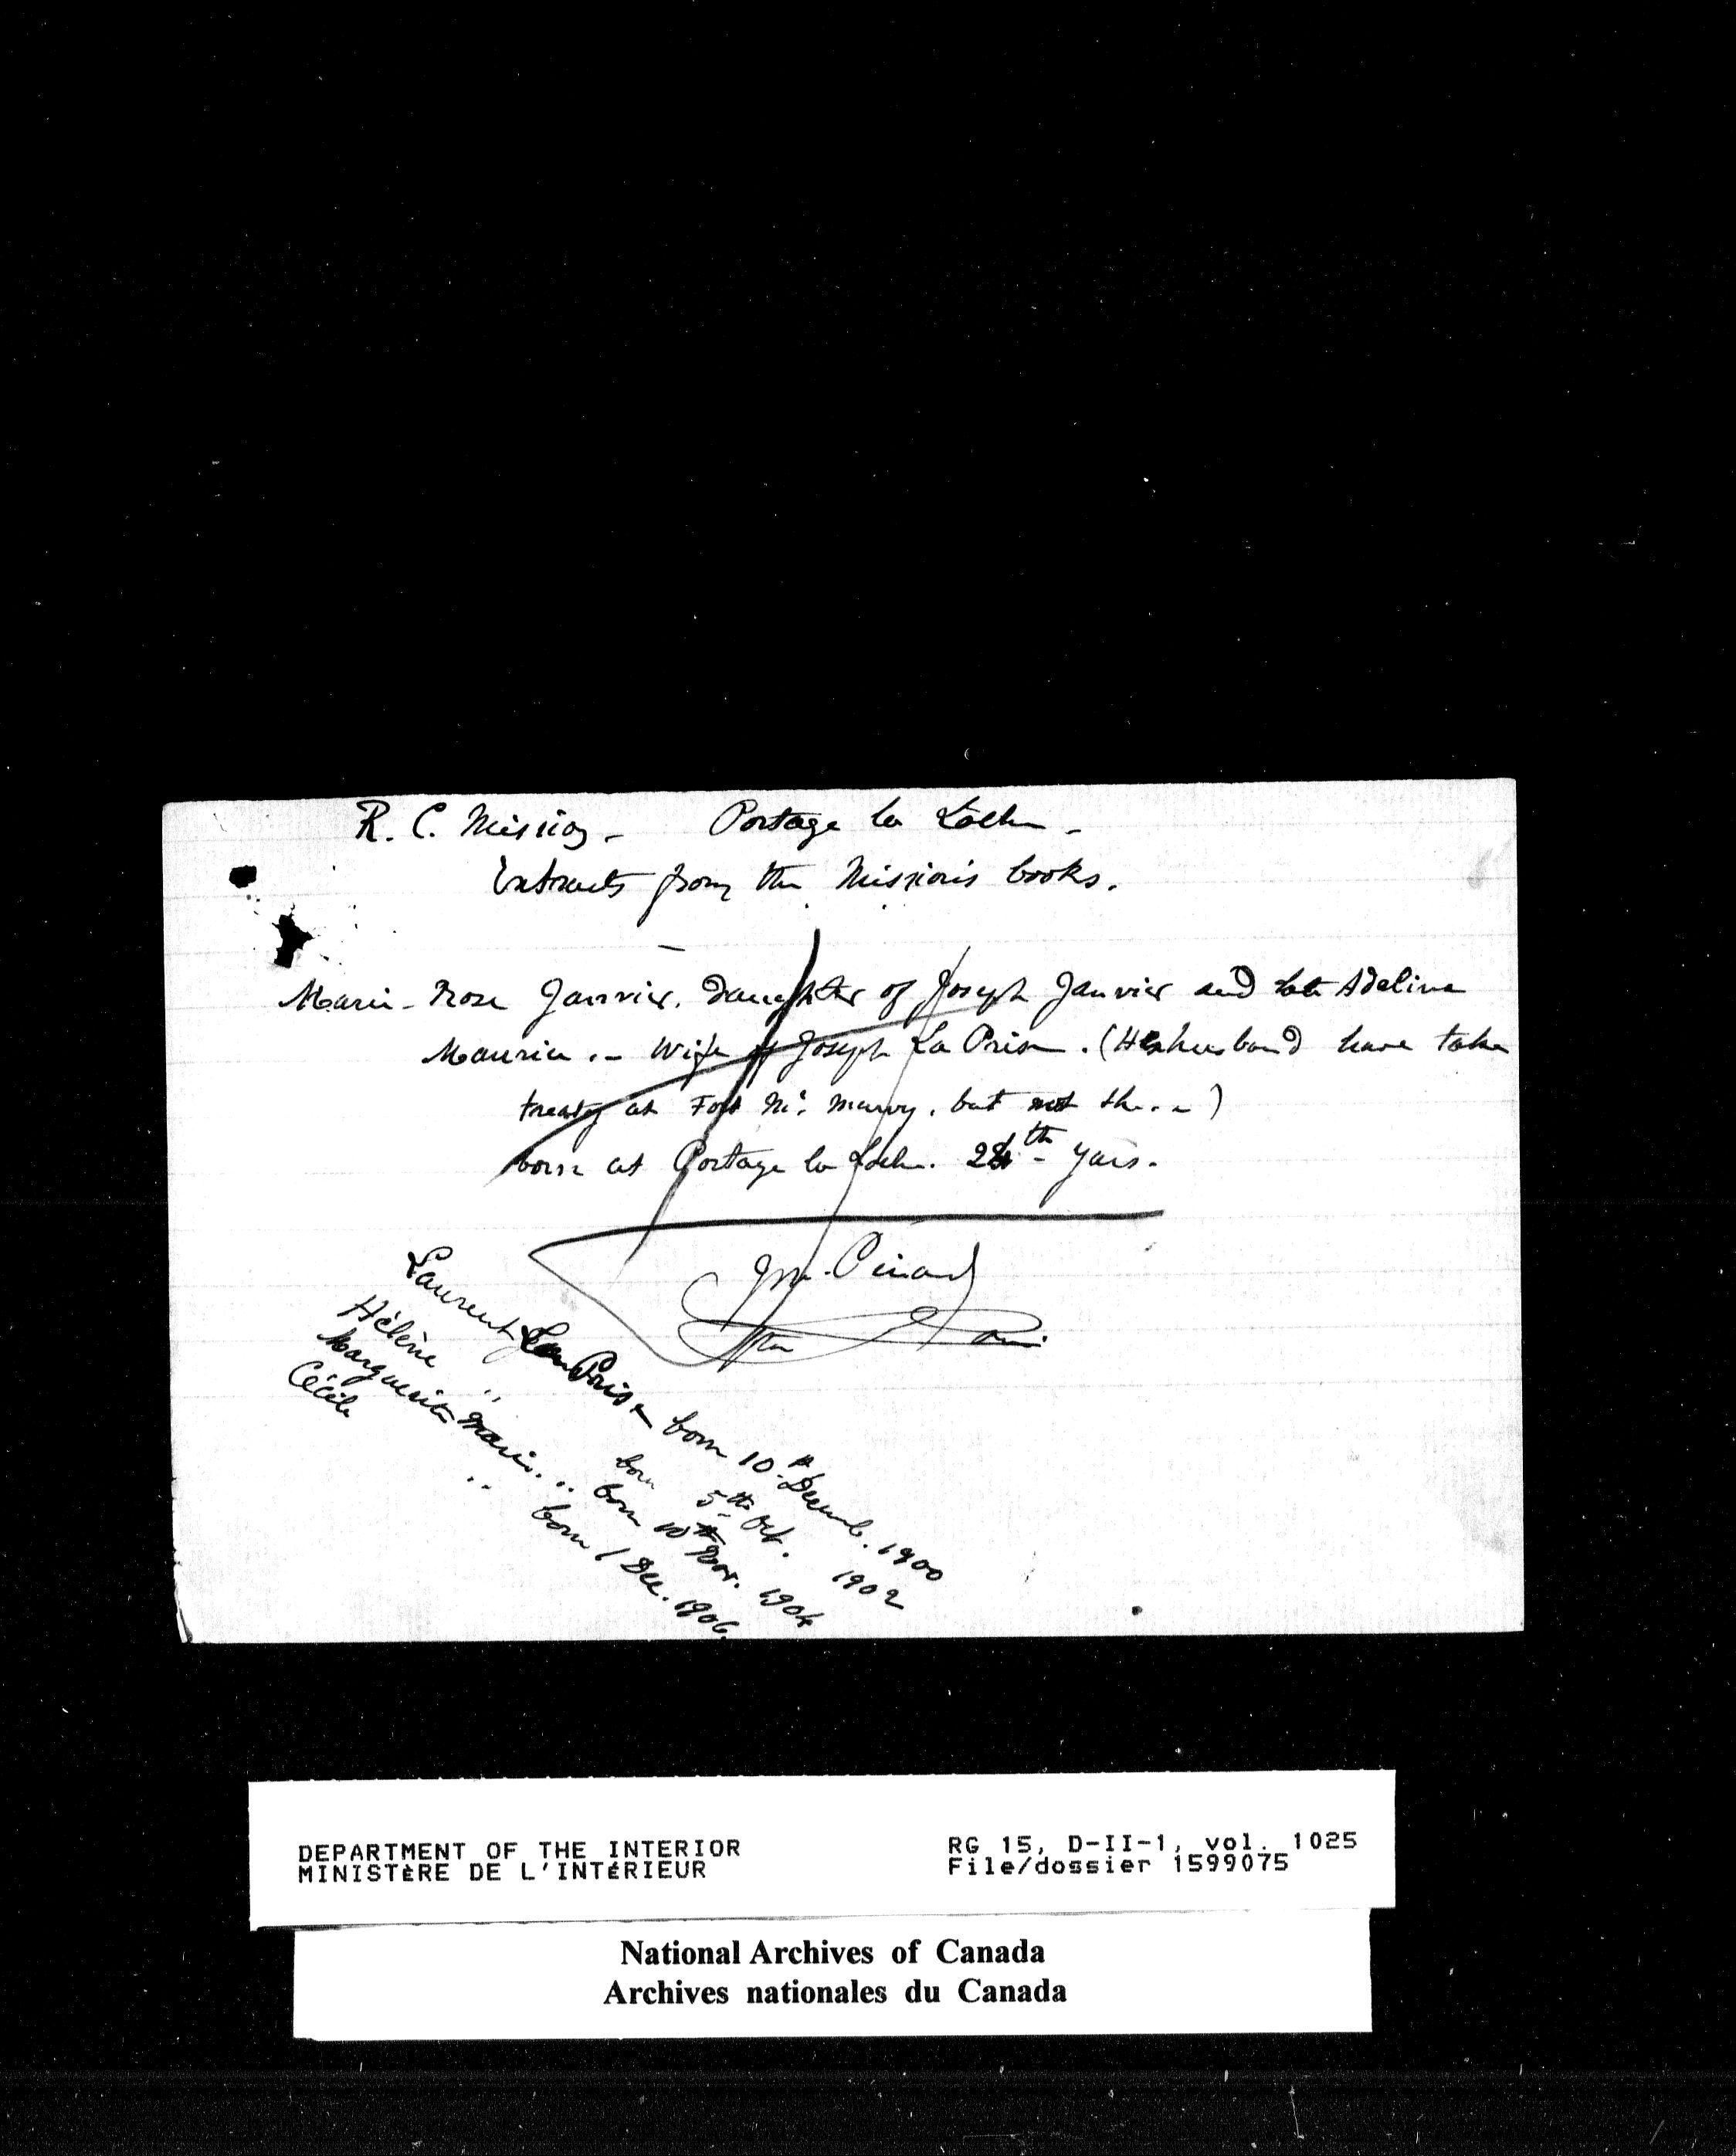 R. C. Mission - Portage la Loche -
Extracts from the Mission's books.
Marie-Rose Janvier. Daughter of Joseph Janvier and late Adeline
Maurice. - Wife of Joseph La Prise. (Her husband have take
treaty at Fort Mc. Murry. but not she..)
born at Portage la Loche. 24th years.
Jn. Penard
Laurent La Prise born 10th Decemb. 1900
Hélène " born 5th Oct. 1902
Marguerite Marie. .. born 10th Nov. 1904
Cécile .. born 1 Dec. 1906.
DEPARTMENT OF THE INTERIOR
MINISTÈRE DE L'INTÉRIEUR
RG 15, D-II-1, vol. 1025
File/dossier 1599075
National Archives of Canada
Archives nationales du Canada